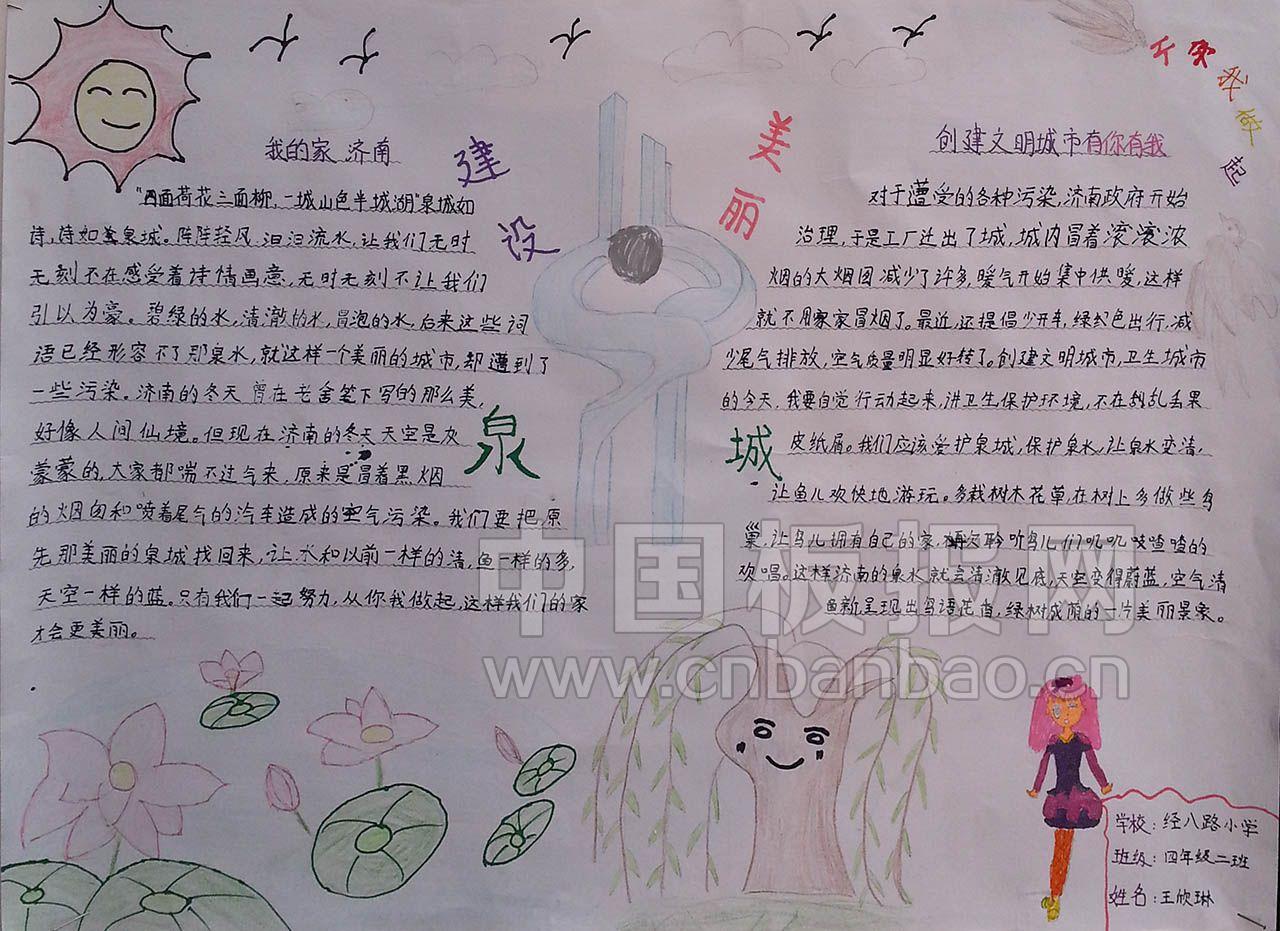 建设
美丽
泉城
我的家 济南
"四面荷花三面柳,一城山色半城湖"泉城如
诗,诗如泉城。阵阵轻风,汩汩流水,让我们无时
无刻不在感受着诗情画意,无时无刻不让我们
引以为豪。碧绿的水,清澈的水,冒泡的水,后来这些词
语已经形容不了那泉水,就这样一个美丽的城市,却遭到了
一些污染。济南的冬天曾在老舍笔下写的那么美,
好像人间仙境。但现在济南的冬天天空是灰
蒙蒙的,大家都喘不过气来,原来是冒着黑烟
的烟囱和喷着尾气的汽车造成的空气污染。我们要把原
先那美丽的泉城找回来,让水和以前一样的清,鱼一样的多,
天空一样的蓝。只有我们一起努力,从你我做起,这样我们的家
才会更美丽。
创建文明城市有你有我
对于遭受的各种污染,济南政府开始
治理,于是工厂迁出了城,城内冒着滚滚浓
烟的大烟囱减少了许多,暖气开始集中供暖,这样
就不用家家冒烟了。最近,还提倡少开车,绿色出行,减
少尾气排放,空气质量明显好转了。创建文明城市,卫生城市
的今天,我要自觉行动起来,讲卫生保护环境,不在乱丢果
皮纸屑。我们应该爱护泉城,保护泉水,让泉水变清,
让鱼儿欢快地游玩。多栽树木花草,在树上多做些鸟
巢,让鸟儿拥有自己的家,再次聆听鸟儿们叽叽喳喳的
欢唱。这样济南的泉水就会清澈见底,天空变得蔚蓝,空气清
新呈现出鸟语花香,绿树成荫的一片美丽景象。
我做起
学校:经八路小学
班级:四年级二班
姓名:王欣琳
中国板报网
www.cnbanbao.cn